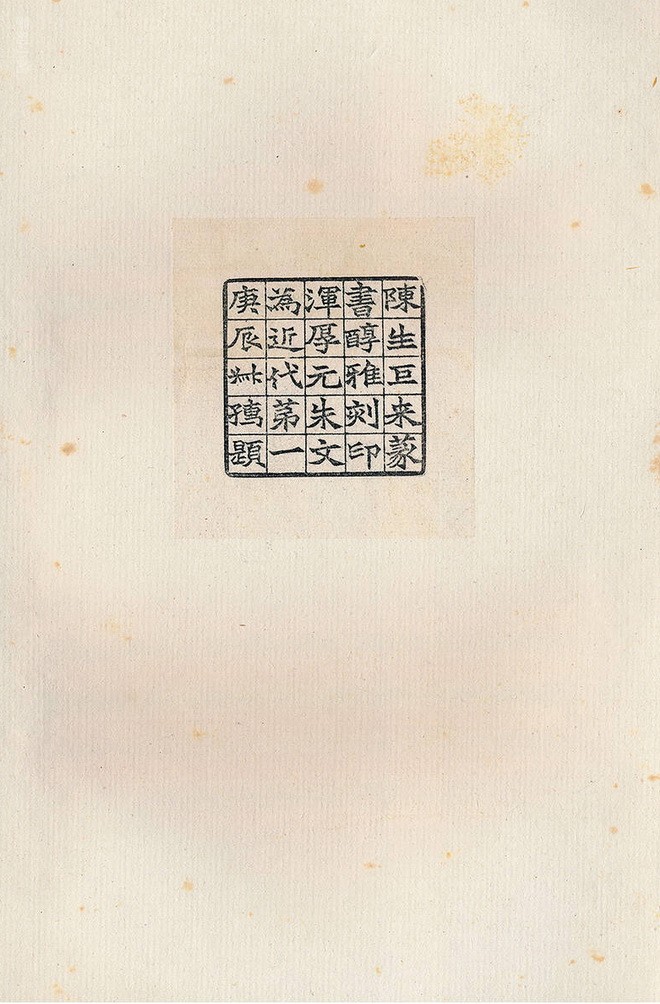 陳生巨来篆
書醇雅刻印
渾厚元朱文
為近代苐一
庚辰艸孺題